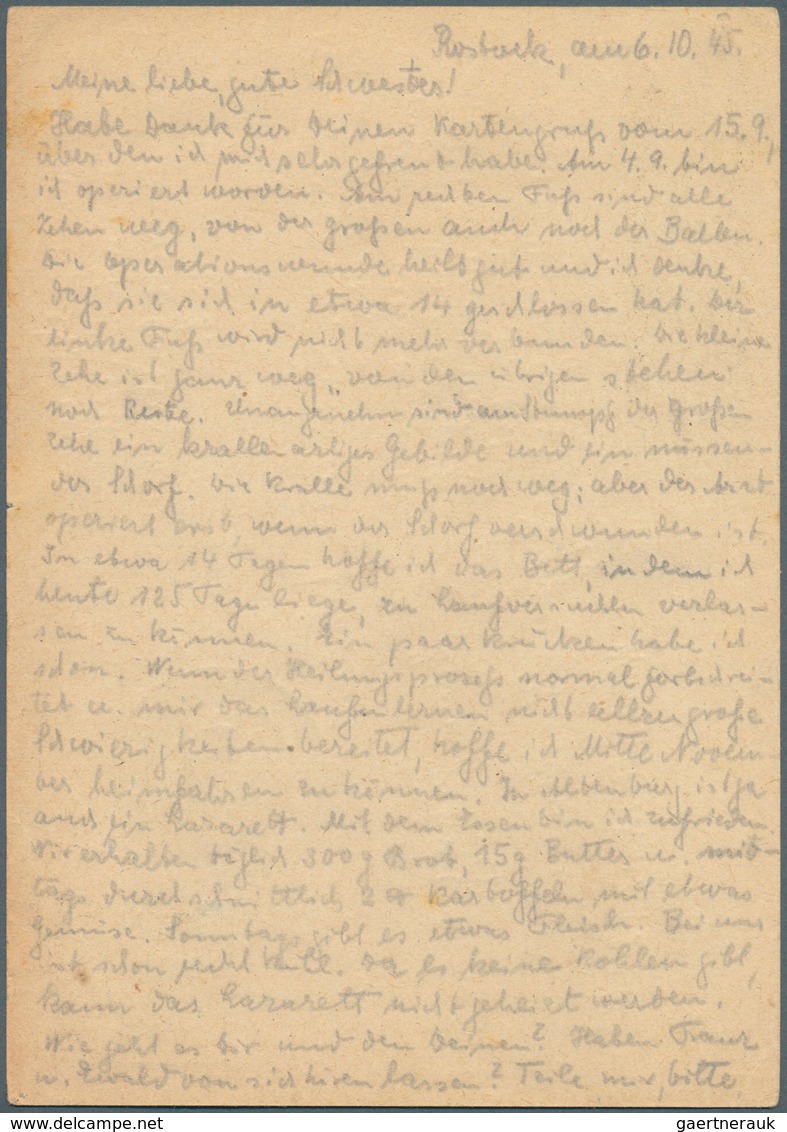 Rostock, am 6. 10. 45.
Meine liebe, gute Schwester!
Habe Dank für Deinen Kartengruß vom 15.9.,
über den ich mich sehr gefreut habe. Am 4.9. bin
ich operiert worden. Am rechten Fuß sind alle
Zehen weg, von der großen auch noch der Ballen.
Die Operationswunde heilt gut und ich denke,
daß sie sich in etwa 14 geschlossen hat. Der
linke Fuß wird nicht mehr verbunden. Die kleine
Zehe ist ganz weg, von den übrigen stehen
noch Reste. Unangenehm sind am Stumpf der großen
Zehe ein krallenartiges Gebilde und ein nässen-
der Schorf. Die Kralle muß noch weg; aber der Arzt
operiert erst, wenn der Schorf verschwunden ist.
In etwa 14 Tagen hoffe ich das Bett, in dem ich
heute 125 Tage liege, zu Laufversuchen verlas-
sen zu können. Ein paar Krücken habe ich
schon. Wenn der Heilungsprozeß normal fortschrei-
tet u. mir das Laufenlernen nicht allzu große
Schwierigkeiten bereitet, hoffe ich Mitte Novem-
ber heimfahren zu können. In Altenburg ist ja
auch ein Lazarett. Mit dem Essen bin ich zufrieden.
Wir erhalten täglich 300g Brot, 15g Butter u. mit-
tags durchschnittlich 2 Kartoffeln mit etwas
Gemüse. Sonntags gibt es etwas Fleisch. Bei uns
ist schon recht kalt. Da es keine Kohlen gibt,
kann das Lazarett nicht geheizt werden.
Wie geht es Dir und den Deinen? Haben Franz
u. Ewald von sich hören lassen? Teile mir, bitte,
gaertnerauk